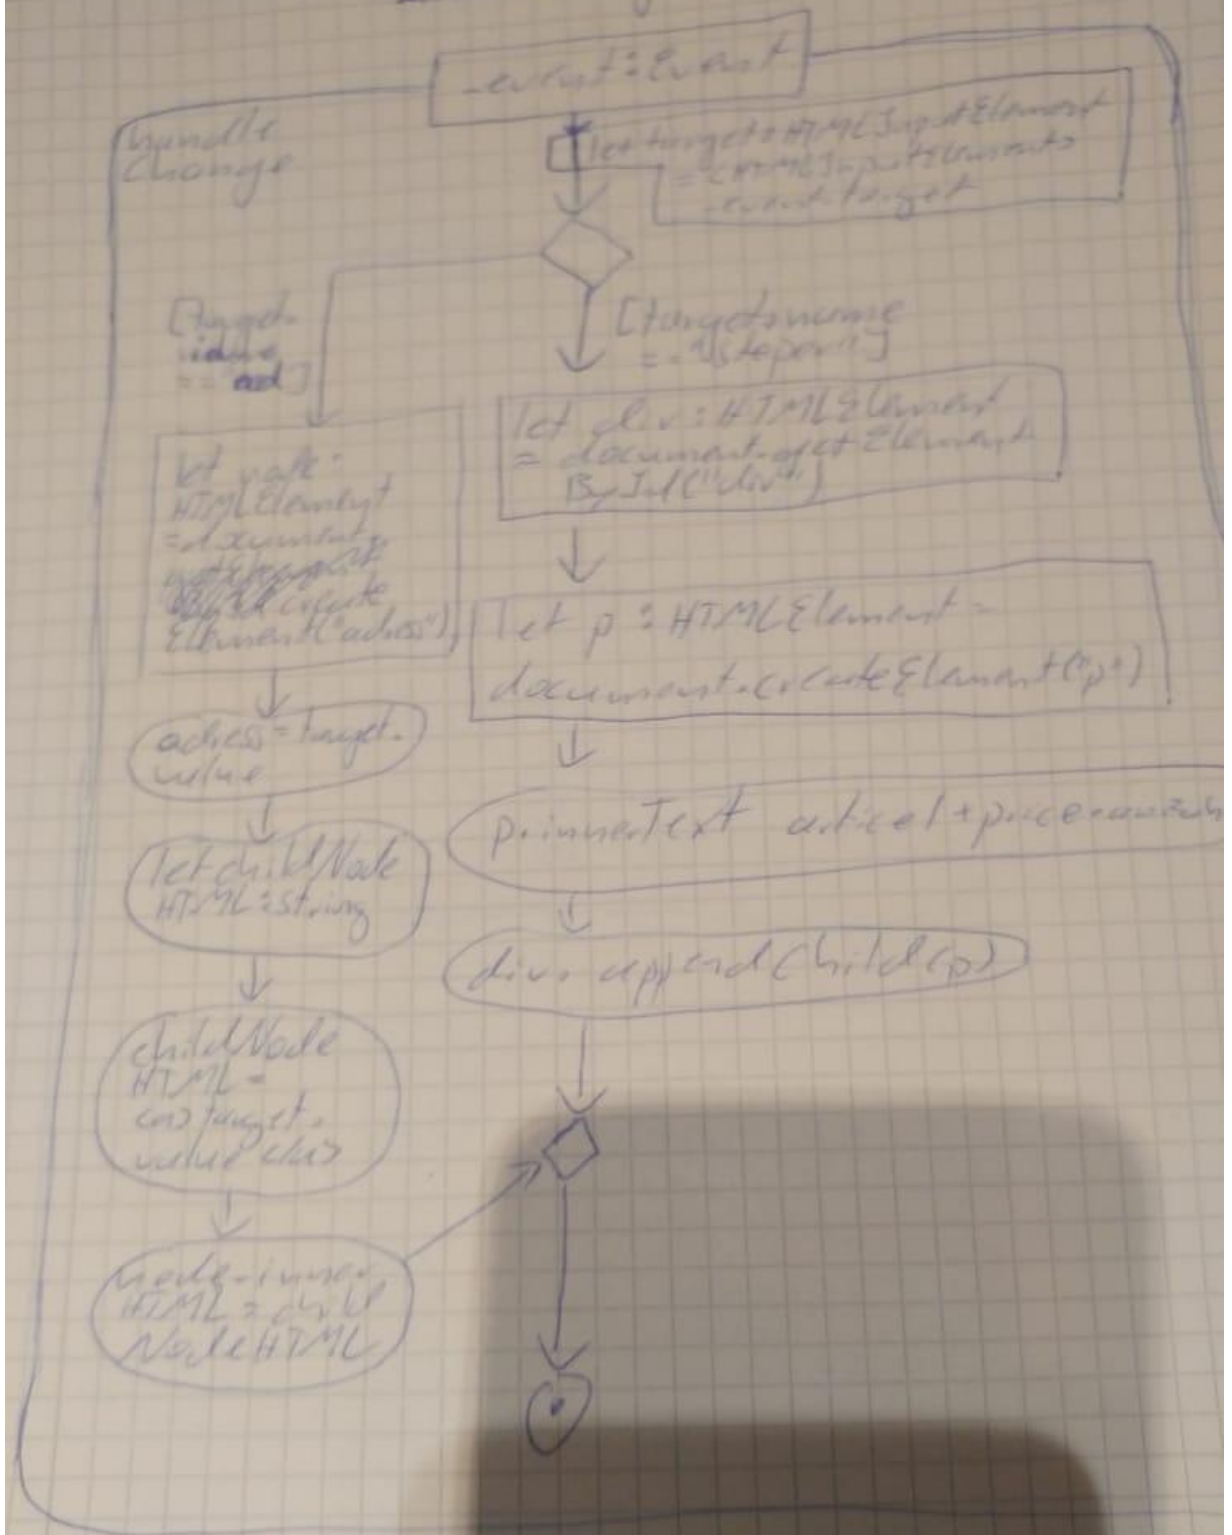 _event: Event
handle
Change
let target: HTMLInputElement
= <HTMLInputElement>
_event.target
[target.
== ad]
[target.name
== "Steper"]
let node:
HTMLElement
= document.
create
Element("adress")
let div: HTMLElement
= document.getElement
ById("div")
let p: HTMLElement =
document.createElement("p")
adress = target.
value
p.innerText article1 + price
let childNode
HTML: string
div.appendChild(p)
childNode
HTML =
target.
value
node.inner
HTML = child
NodeHTML